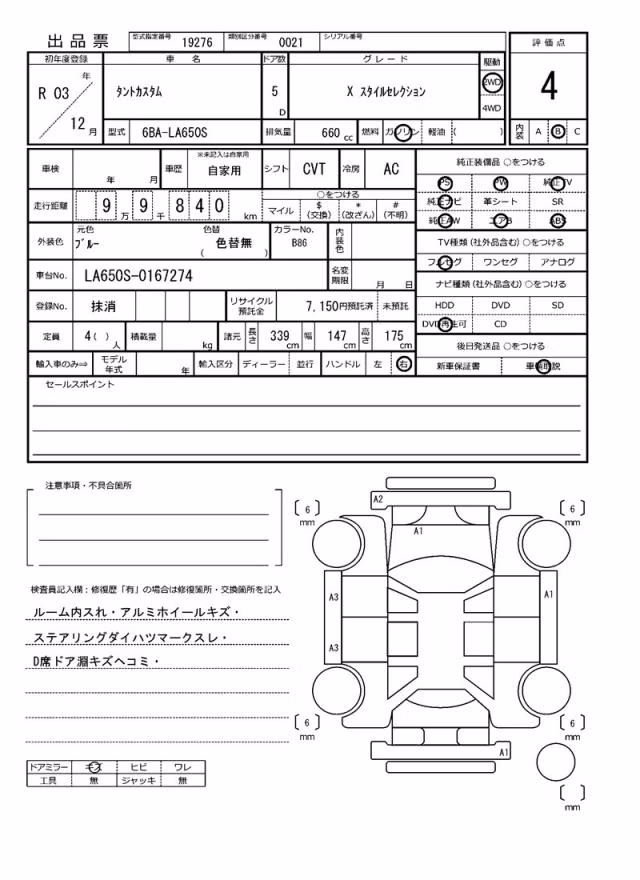 出品票 型式指定番号 19276 類別区分番号 0021 シリアル番号
初年度登録 車 名 ドア数 グレード 駆動 評価点
R 03 年 12 月 タントカスタム 5 D X スタイルセレクション 2WD 4WD 4
型式 6BA-LA650S 排気量 660 cc 燃料 ガソリン 軽油 ( ) 内装 A B C
車検 年 月 車歴 ※未記入は自家用 自家用 シフト CVT 冷房 AC 純正装備品 ○をつける
PS PW 純正TV
走行距離 9 万 9 千 8 4 0 km ○をつける 純正ナビ 革シート SR
マイル $ (交換) * (改ざん) # (不明) 純正AW エアB ABS
外装色 元色 ブルー 色替 色替無 ( ) カラーNo. B86 内装色 TV種類 (社外品含む) ○をつける
フルセグ ワンセグ アナログ
車台No. LA650S-0167274 名変期限 月 日 ナビ種類 (社外品含む) ○をつける
登録No. 抹消 リサイクル預託金 7,150円預託済 未預託 HDD DVD SD
DVD再生可 CD
定員 4 ( ) 人 積載量 kg 諸元 長さ 339 cm 幅 147 cm 高さ 175 cm 後日発送品 ○をつける
輸入車のみ⇒ モデル年式 年 輸入区分 ディーラー 並行 ハンドル 左 右 新車保証書 車輌取説
セールスポイント
注意事項・不具合箇所
検査員記入欄：修復歴「有」の場合は修復箇所・交換箇所を記入
ルーム内スれ・アルミホイールキズ・
ステアリングダイハツマークスレ・
D席ドア淵キズヘコミ・
ドアミラー キズ ヒビ ワレ
工具 無 ジャッキ 無
A2
6 mm 6 mm
A1
A3 A1
A3
6 mm 6 mm
A1
mm